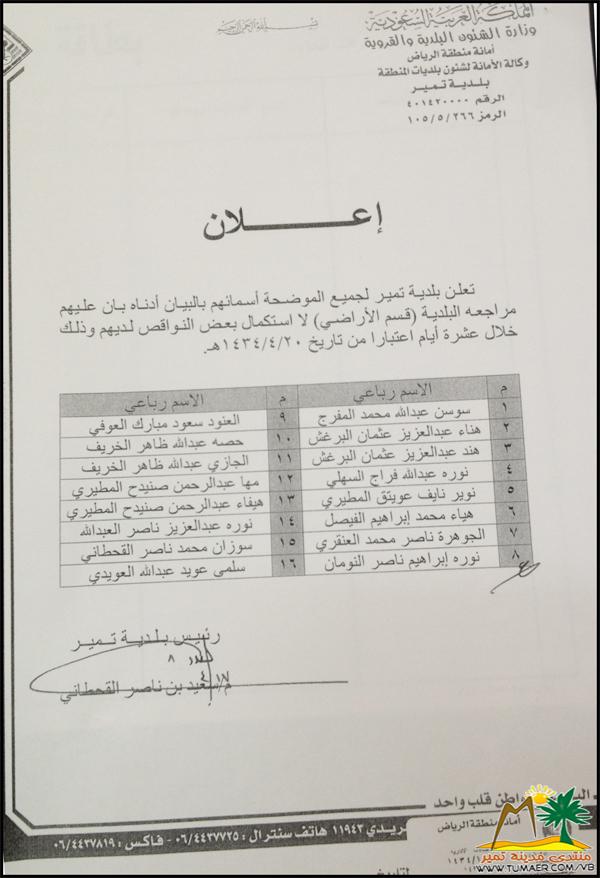 المملكة العربية السعودية
وزارة الشئون البلدية والقروية
أمانة منطقة الرياض
وكالة الأمانة لشئون بلديات المنطقة
بلدية تمير
الرقم ٤٠١٤٢٠٠٠٠
الرمز ١٠٥/٥/٢٦٦
بسم الله الرحمن الرحيم
إعلان
تعلن بلدية تمير لجميع الموضحة أسمائهم بالبيان أدناه بان عليهم
مراجعه البلدية (قسم الأراضي) لا استكمال بعض النواقص لديهم وذلك
خلال عشرة أيام اعتبارا من تاريخ ١٤٣٤/٤/٢٠هـ.
م الاسم رباعي م الاسم رباعي
١ سوسن عبدالله محمد المفرج ٩ العنود سعود مبارك العوفي
٢ هناء عبدالعزيز عثمان البرغش ١٠ حصه عبدالله ظاهر الخريف
٣ هند عبدالعزيز عثمان البرغش ١١ الجازي عبدالله ظاهر الخريف
٤ نوره عبدالله فراج السهلي ١٢ مها عبدالرحمن صنيدح المطيري
٥ نوير نايف عويتق المطيري ١٣ هيفاء عبدالرحمن صنيدح المطيري
٦ هياء محمد إبراهيم الفيصل ١٤ نوره عبدالعزيز ناصر العبدالله
٧ الجوهرة ناصر محمد العنقري ١٥ سوزان محمد ناصر القحطاني
٨ نوره إبراهيم ناصر النومان ١٦ سلمى عويد عبدالله العويدي
رئيس بلدية تمير
م/سعيد بن ناصر القحطاني
قلب واحد
أمانة منطقة الرياض
بريدي ١١٩٤٣ هاتف سنترال : ٠٦/٤٤٣٧٧٢٥ - فاكس : ٠٦/٤٤٣٧٨١٩
منتدى مدينة تمير
WWW.TUMAER.COM/VB